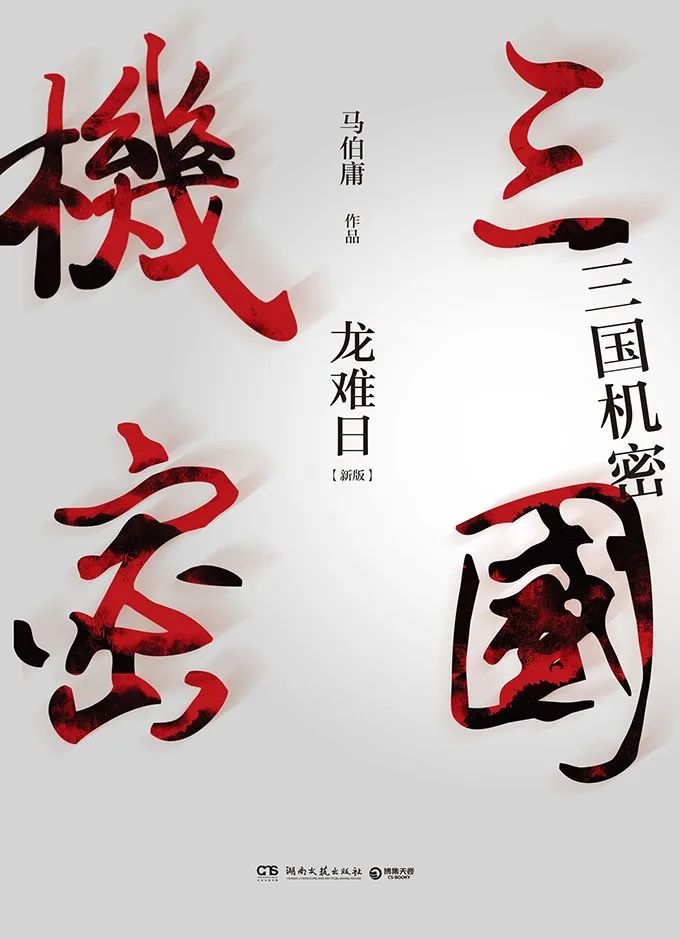 三國
機密
三国机密
马伯庸 作品
龙难日
【新版】
CNS 湖南文艺出版社 博集天卷
HUNAN LITERATURE AND ART PUBLISHING HOUSE CS-BOOKY